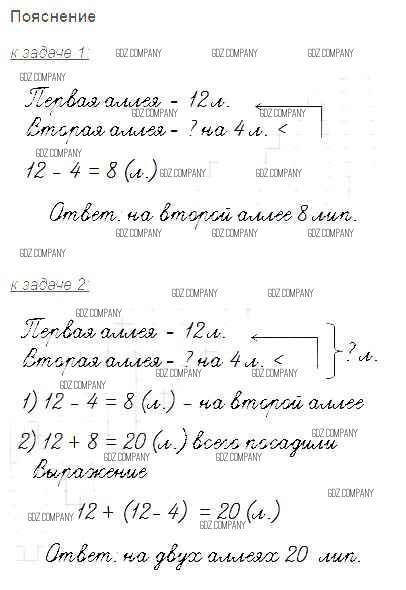 Пояснение
к задаче 1:
GDZ.COMPANY GDZ.COMPANY GDZ.COMPANY
GDZ.COMPANY
Первая аллея - 12 л.
GDZ.COMPANY GDZ.COMPANY
Вторая аллея - ? на 4 л. <
GDZ.COMPANY
12 - 4 = 8 (л.) GDZ.COMPANY GDZ.COMPANY
Ответ: на второй аллее 8 лип.
GDZ.COMPANY GDZ.COMPANY GDZ.COMPANY
GDZ.COMPANY
к задаче 2:
GDZ.COMPANY GDZ.COMPANY
GDZ.COMPANY
Первая аллея - 12 л.
Вторая аллея - ? на 4 л. < ? л.
GDZ.COMPANY GDZ.COMPANY
GDZ.COMPANY
1) 12 - 4 = 8 (л.) - на второй аллее
2) 12 + 8 = 20 (л.) всего посадили
GDZ.COMPANY
GDZ.COMPANY GDZ.COMPANY
Выражение
GDZ.COMPANY
GDZ.COMPANY 12 + (12 - 4) = 20 (л.)
GDZ.COMPANY
Ответ: на двух аллеях 20 лип.